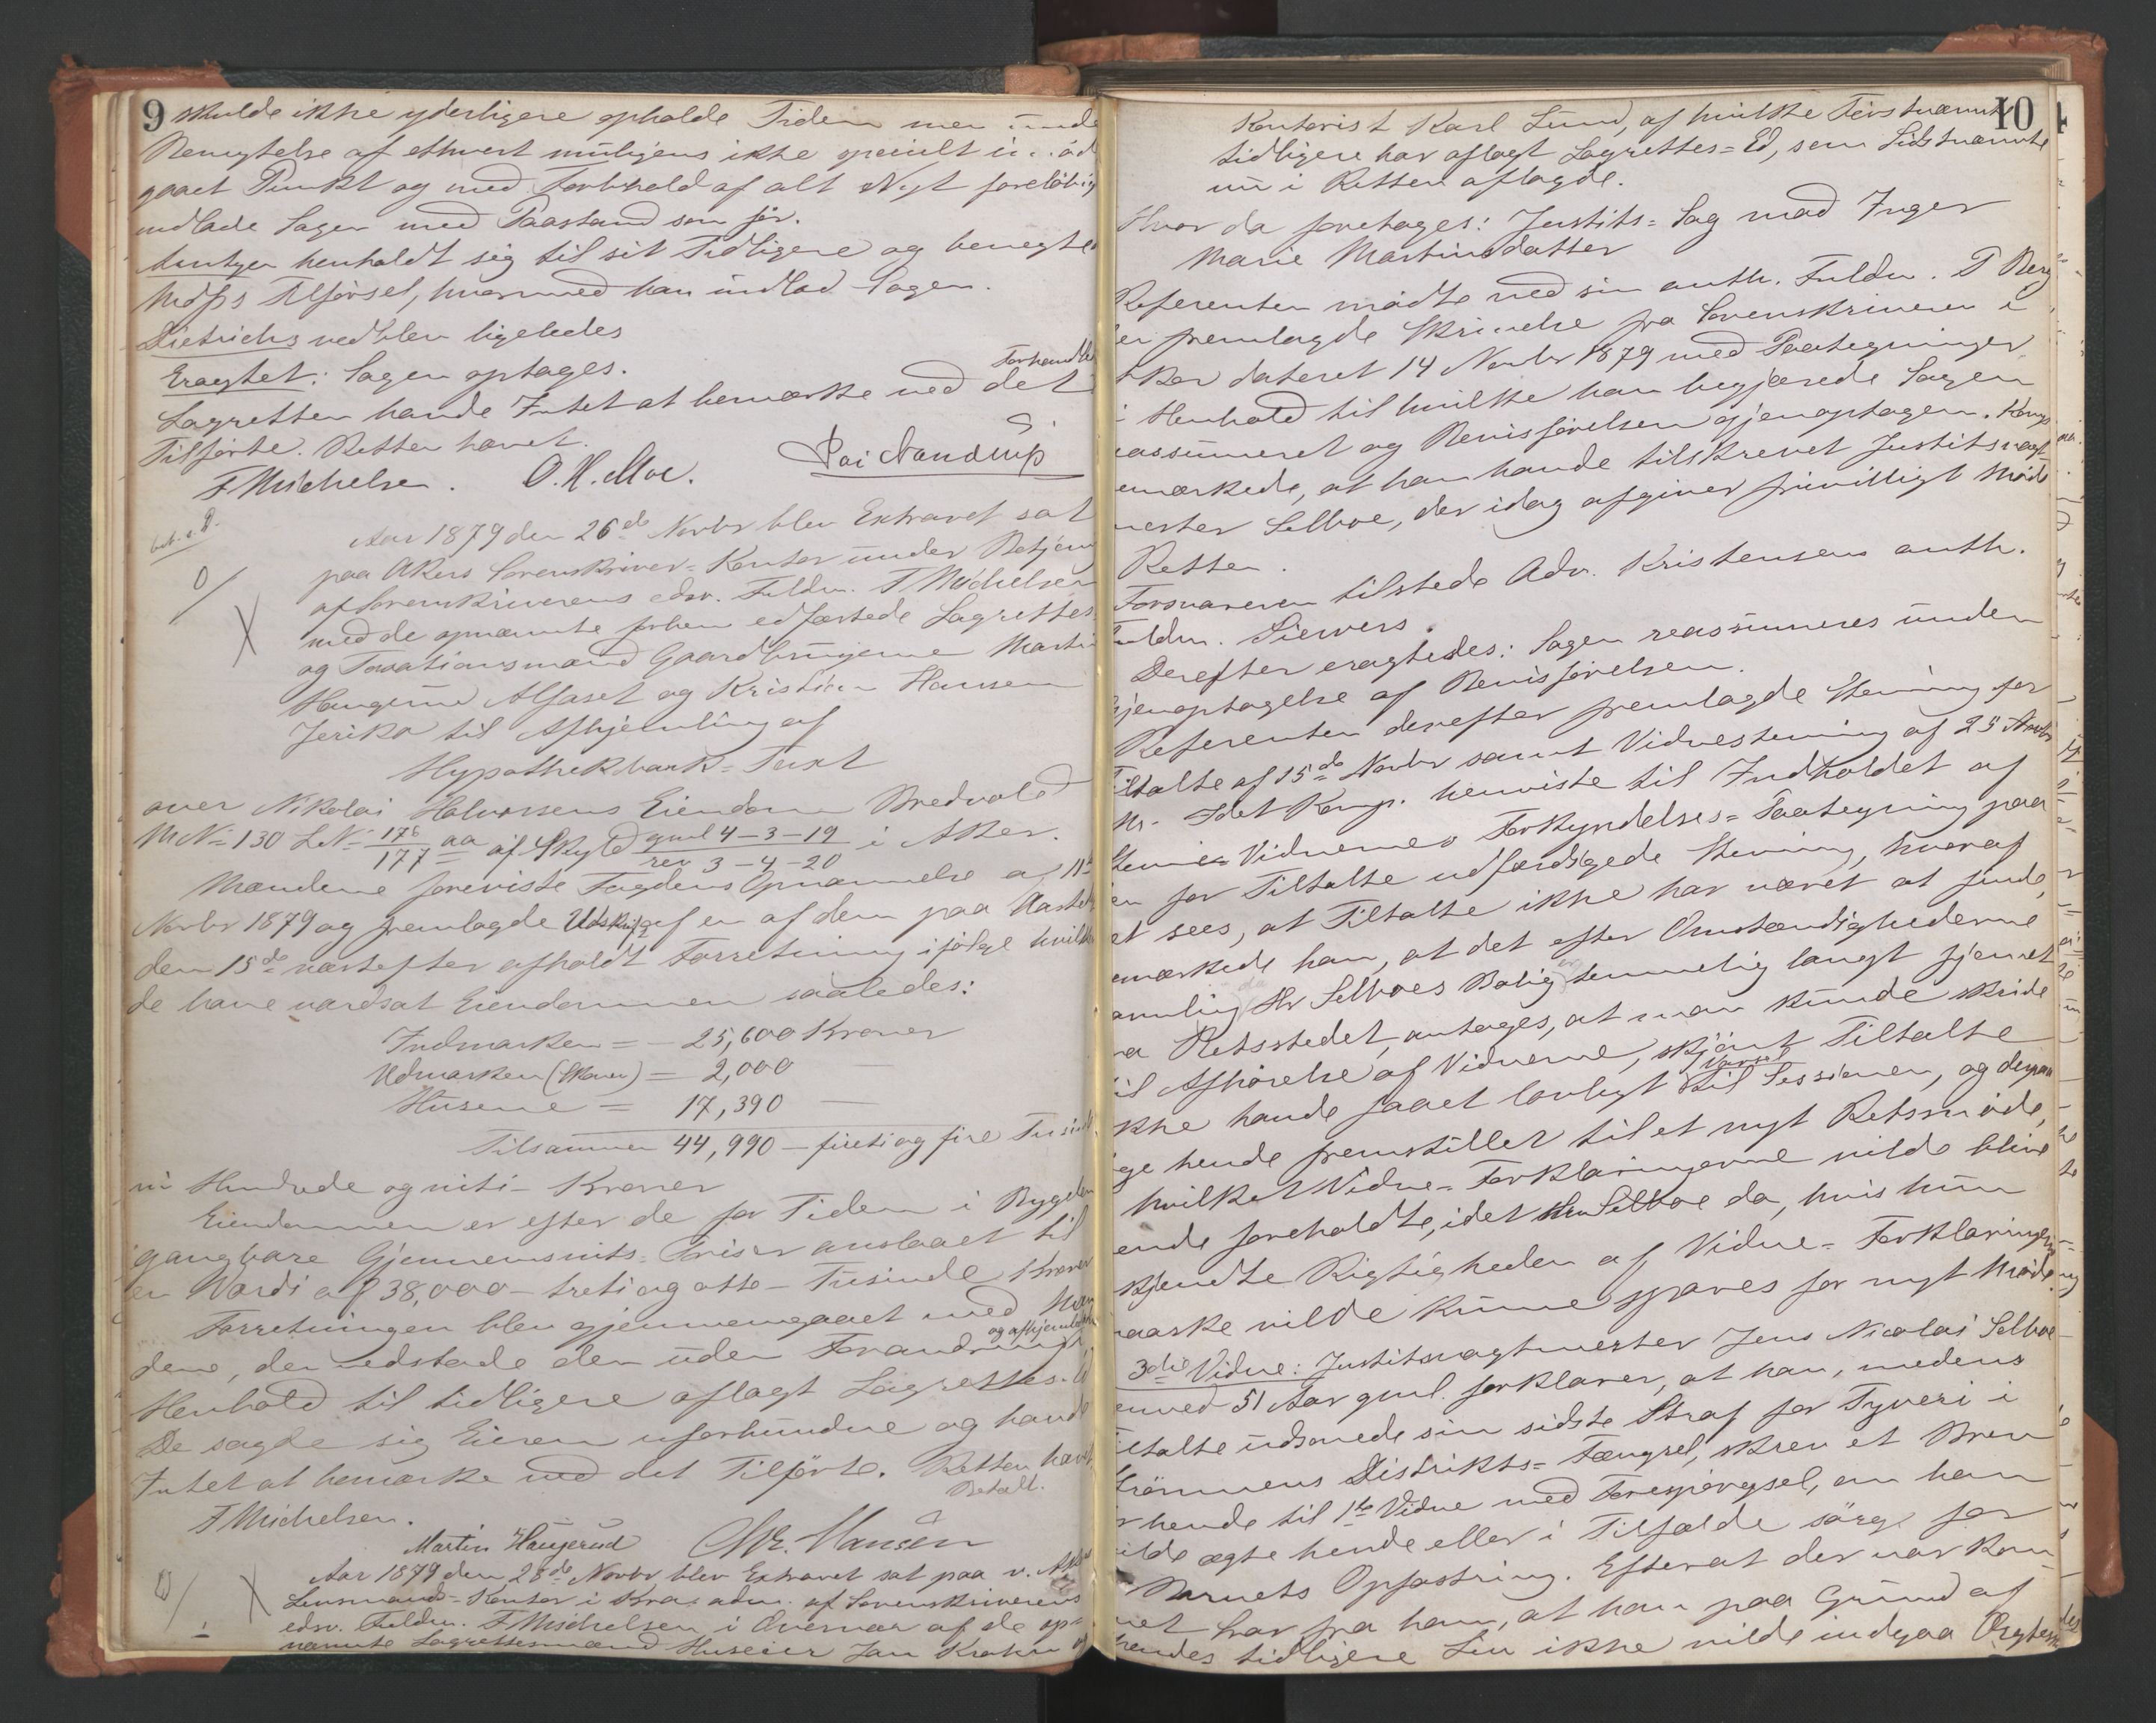 9 skulde ikke yderligere opholde Tiden men unde
Benegtelse af ethvert muligens ikke specielt
gaaet Punkt og med Forbehold af alt Nyt foreløbig
indlade Sagen med Paastand som før.
henholdt sig til sit Tidligere og benegte
Modps Tilførsel, hvormed han indlod Sagen.
Dietrichs vedblev ligeledes
Eragtet: Sagen optages.
Forhandle
Lagretten havde Intet at bemærke ved det
Tilførte. Retten hævet.
F Michelsen. O. H. Moe.
Aar 1879 den 26de Novbr blev Extraret sat
paa Akers Sorenskriver-Kontor under Betjening
af Sorenskriverens edsv. Fuldm. F Michelsen
med de opnævnte forhen edfæstede Lagrettes
og Taxationsmænd Gaardbrugerne Martin
Haugerud Alfaset og Kristian Hansen
Jeriko til Afhjemling af
Hypothekbank-Taxt
over Nikolai Halvorsens Eiendom Bredvold
M No 130 L No 176/177 aa af Skyld gml 4-3-19 / rev 3-4-20 i Aker.
Mændene foreviste Fogdens Opnævnelse af 11te
Novbr 1879 og fremlagde Udskrift af en af dem paa Aastedet
den 15de næstefter afholdt Forretning ifølge hvilken
de have værdsat Eiendommen saaledes:
Indmarken = - 25,600 Kroner
Udmarken (Skoven) = 2,000 —
Husene = 17,390 —
Tilsammen 44,990 - firetiogfire Tusinde
ni Hundrede og niti - Kroner
Eiendommen er efter de for Tiden i Bygden
gangbare Gjennemsnits-Priser anslaaet til
en Værdi af 38,000 - tretiogotte - Tusinde Kroner
Forretningen blev gjennemgaaet med Mæn
og afhjemlede
dene, der vedstode den uden Forandring i
Henhold til tidligere aflagt Lagrettes-
De sagde sig Eieren uforbundne og havde
Intet at bemærke ved det Tilførte. Retten hævet
Betalt.
F Michelsen.
Martin Haugerud Chr. Hansen
Aar 1879 den 28de Novbr blev Extraret sat paa v. Akers
Lensmands-Kontor i Kra. adm. af Sorenskriverens
edsv. Fuldm. F Michelsen i Overvær af de op-
nævnte Lagrettesmænd Huseier Jan Krohn og
10
Kontorist Karl Lund, af hvilke Førstnævnte
tidligere har aflagt Lagrettes-Ed, som Sidstnævnte
nu i Retten aflagde.
Hvor da foretages: Justits-Sag mod Inger
Marie Martinsdatter
Referenten mødte ved sin auth. Fuldm. P Berg
der fremlagde Skrivelse fra Sorenskriveren i
Aker dateret 14 Novbr 1879 med Paategninger
i Henhold til hvilke han begjærede Sagen
reassumeret og Bevisførelsen gjenoptagen. Komp
bemærkede, at han havde tilskrevet Justitsvagt-
mester Selboe, der idag afgiver frivilligt Møde
Retten.
Forsvareren tilstede Adv. Kristensens auth.
Fuldm. Siewers.
Derefter eragtedes: Sagen reassumeres under
Gjenoptagelse af Bevisførelsen.
Referenten derefter fremlagde Stevning for
Tiltalte af 15de Novbr samt Vidnestevning af 25 Novbr
Idet Komp. henviste til Indholdet af
Vidnernes Forkyndelses-Paategning paa
en for Tiltalte udfærdigede Stevning, hvoraf
det sees, at Tiltalte ikke har været at finde,
bemærkede han, at det efter Omstændighederne
da
navnlig Hr Selboes Bolig temmelig langt fjernet
fra Retsstedet, antages, at man kunde skride
til Afhørelse af Vidnerne, skjønt Tiltalte
Varsel
ikke havde faaet lovligt til Sessionen, og derpaa
hende fremstillet til et nyt Retsmøde,
hvilket Vidne-Forklaringerne vilde blive
hende foreholdte, idet Hr Selboe da, hvis hun
kjendte Rigtigheden af Vidne-Forklaringerne
maaske vilde kunne spares for nyt Møde.
3die Vidne: Justitsvagtmester Jens Nicolai Selboe
51 Aar gml. forklarer, at han, medens
Tiltalte udsonede sin sidste Straf for Tyveri i
Strømmens Distrikts-Fængsel, skrev et Brev
for hende til 1ste Vidne med Forespørgsel, om han
vilde ægte hende eller i Tilfælde sørge for
Barnets Opfostring. Efterat der var kom-
met Svar fra ham, at han paa Grund af
hendes tidligere Liv ikke vilde indgaa Ægteskab